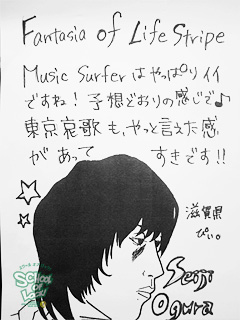 Fantasia of Life Stripe
Music Surfer はやっぱりイイ
ですね！予想どおりの感じで♪
東京哀歌も、やっと言えた感
があって すきです!!
滋賀県
ぴぃ。
Seiji
Ogura
SCHOOL OF LOCK!